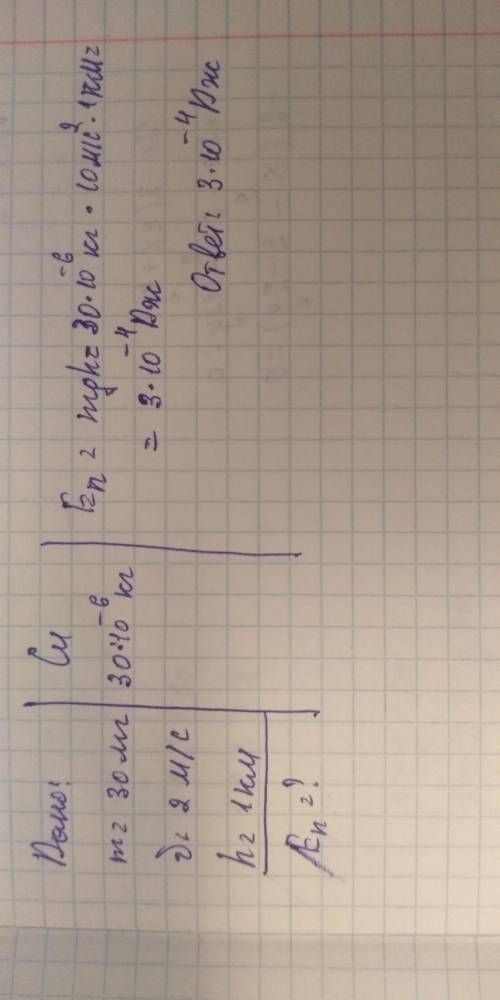 Дано:
m = 30 мг
v = 2 м/с
h = 1 км
Eп = ?
Си
30·10⁻⁶ кг
Eп = mgh = 30·10⁻⁶ кг · 10 м/с² · 1 км =
= 3·10⁻⁴ Дж
Ответ: 3·10⁻⁴ Дж